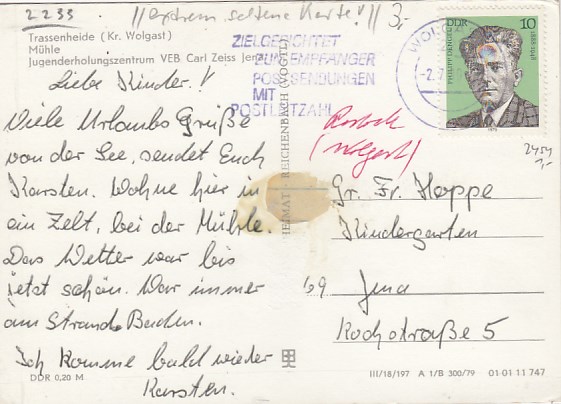 2233 !!extrem seltene Karte!!! 3,-
Trassenheide (Kr. Wolgast)
Mühle
Jugenderholungszentrum VEB Carl Zeiss Jena
ZIELGERICHTET
ZUM EMPFÄNGER
POSTSENDUNGEN
MIT
POSTLEITZAHL
WOLGAST
-2.7
DDR 10
PHILIPP DENGEL
1888-1948
1979
Liebe Kinder!
Viele Urlaubs Grüße
von der See, sendet Euch
Karsten. Wohne hier in
ein Zelt, bei der Mühle.
Das Wetter war bis
jetzt schön. War immer
am Strand Baden.
Ich komme bald wieder
Karsten.
DDR 0,20 M
HEIMAT · REICHENBACH (VOGTL)
Rostock
(Wolgast)
2454
1,-
Gr. Fr. Hoppe
Kindergarten
69 Jena
Kochstraße 5
III/18/197 A 1/B 300/79 01 01 11 747